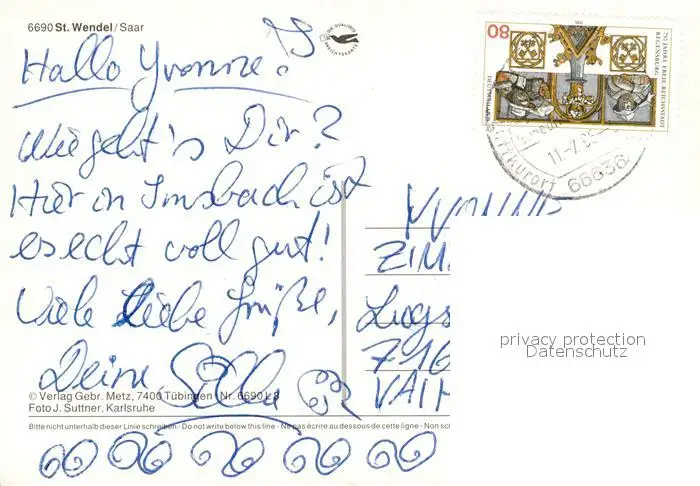 6690 St. Wendel / Saar
DIE QUALITÄTS
ANSICHTSKARTE
80
750 JAHRE FREIE REICHSSTADT REGENSBURG
Hallo Yvonne!
Wie geht's Dir?
Hier in Imsbach ist
es echt voll gut!
Viele liebe Grüße,
Deine Silke
11.-7.95
Luftkurort 66636
YVONNE
ZIM
Lugs
716
VAIH
privacy protection
Datenschutz
© Verlag Gebr. Metz, 7400 Tübingen · Nr. 6690 L 8
Foto J. Suttner, Karlsruhe
Bitte nicht unterhalb dieser Linie schreiben - Do not write below this line - Ne pas écrire au dessous de cette ligne - Non scr